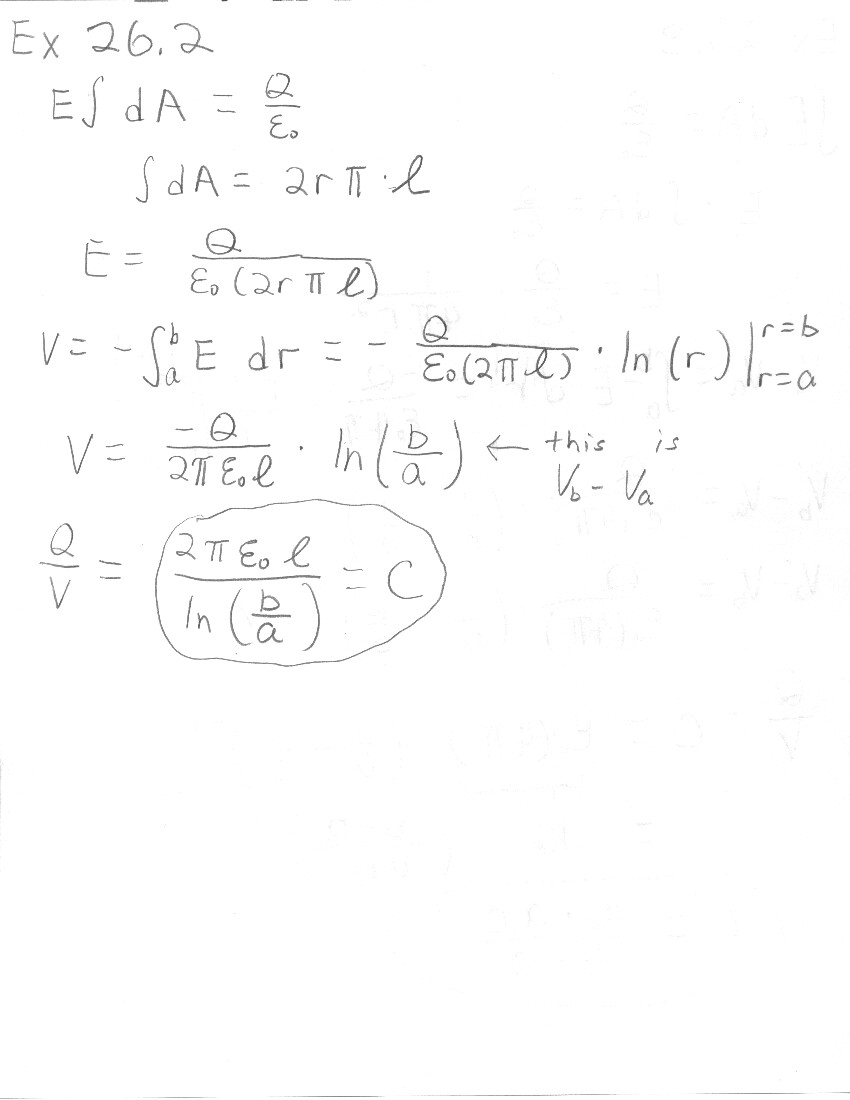 Ex 26.2
E∫ dA = Q/ε₀
∫dA = 2rπ·l
E = Q/(ε₀(2rπl))
V = -∫ₐᵇ E dr = - Q/(ε₀(2πl)) · ln(r)|r=b r=a
V = -Q/(2πε₀l) · ln(b/a) ← this is
V_b - V_a
Q/V = 2πε₀l/ln(b/a) = C